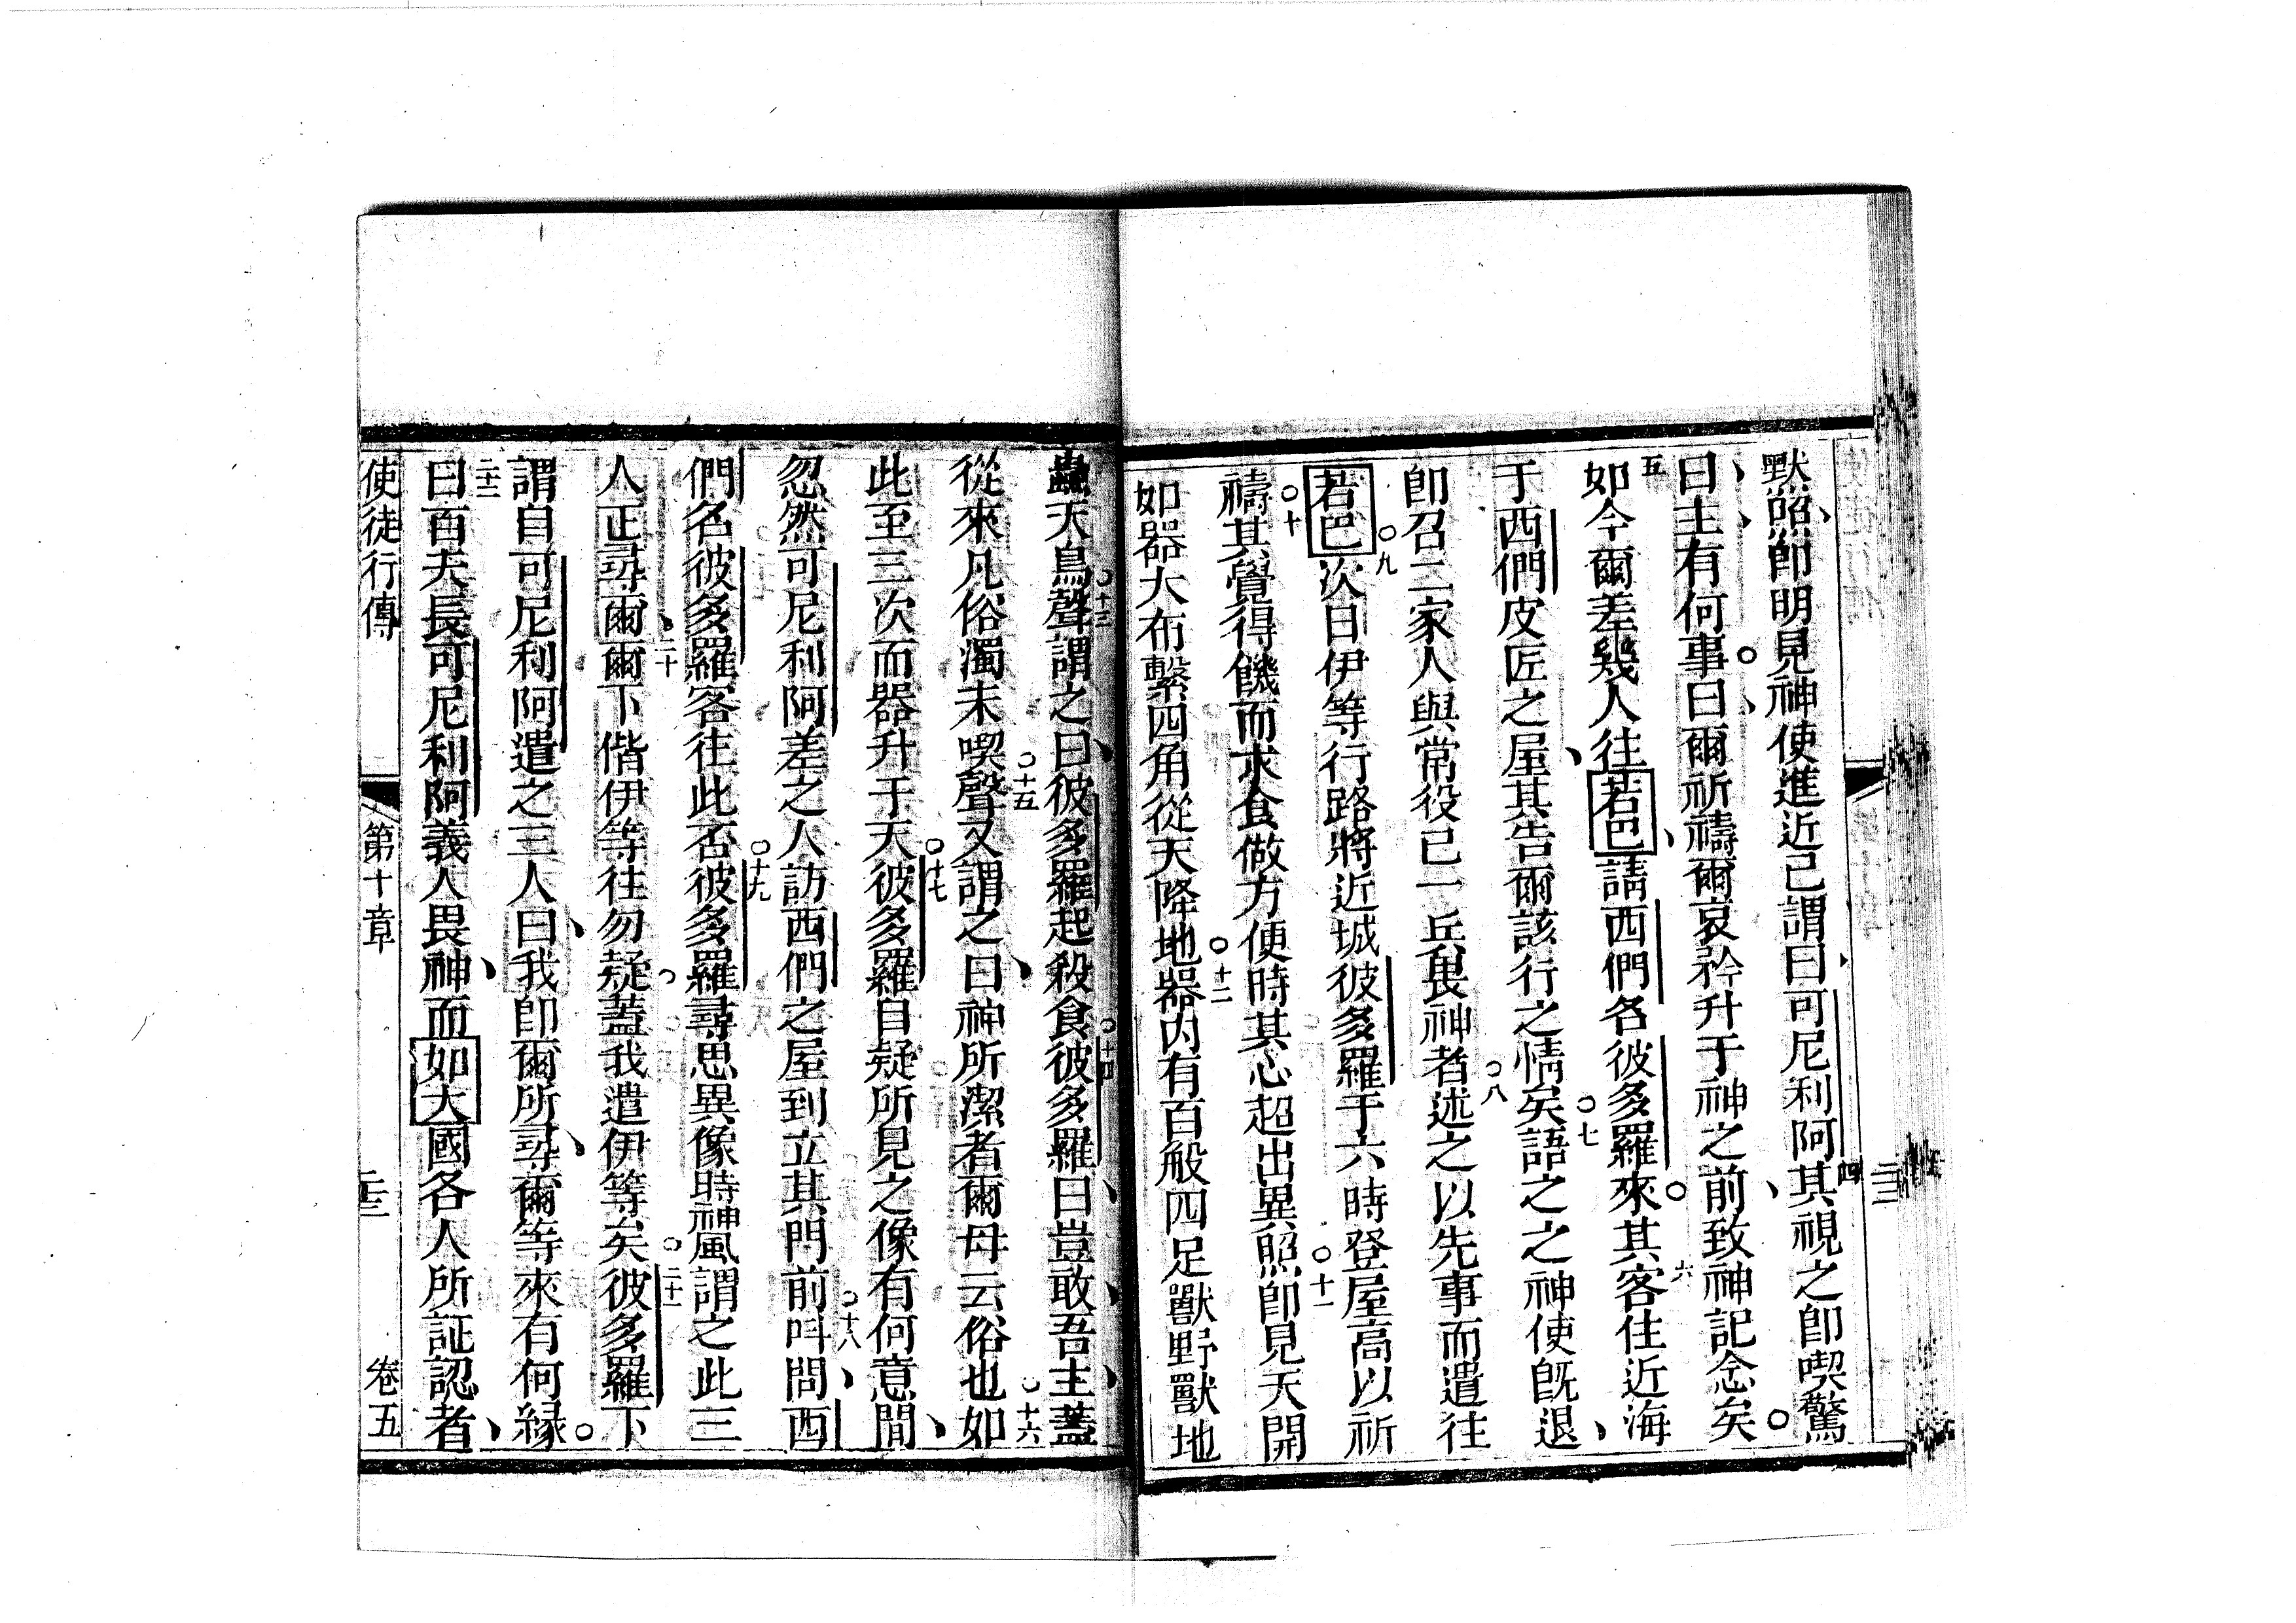 默照卽明見神使進近己謂曰可尼利阿四其視之卽喫驚
曰主有何事曰爾祈禱爾哀矜升于神之前致神記念矣
五如今爾差幾人往若巴請西們名彼多羅來六其客住近海
于西們皮匠之屋其告爾該行之情矣七語之之神使既退
卽召二家人與常役己一兵畏神者八述之以先事而遣往
若巴九次日伊等行路將近城彼多羅于六時登屋高以祈
禱十其覺得饑而求食做方便時其心超出異照十一卽見天開
如器大布繫四角從天降地十二器内有百般四足獸野獸地
蟲天鳥十三聲謂之曰彼多羅起殺食十四彼多羅曰豈敢吾主蓋
從來凡俗濁未喫十五聲又謂之曰神所潔者爾毋云俗也十六如
此至三次而器升于天十七彼多羅自疑所見之像有何意間
忽然可尼利阿差之人訪西們之屋到立其門前十八呌問西
們名彼多羅客往此否十九彼多羅尋思異像時神風謂之此三
人正尋爾二十爾下偕伊等往勿疑蓋我遣伊等矣二十一彼多羅下
謂自可尼利阿遣之三人曰我卽爾所尋爾等來有何縁
二十二曰百夫長可尼利阿義人畏神而如大國各人所証認者
使徒行傳 第十章 二十三 卷五